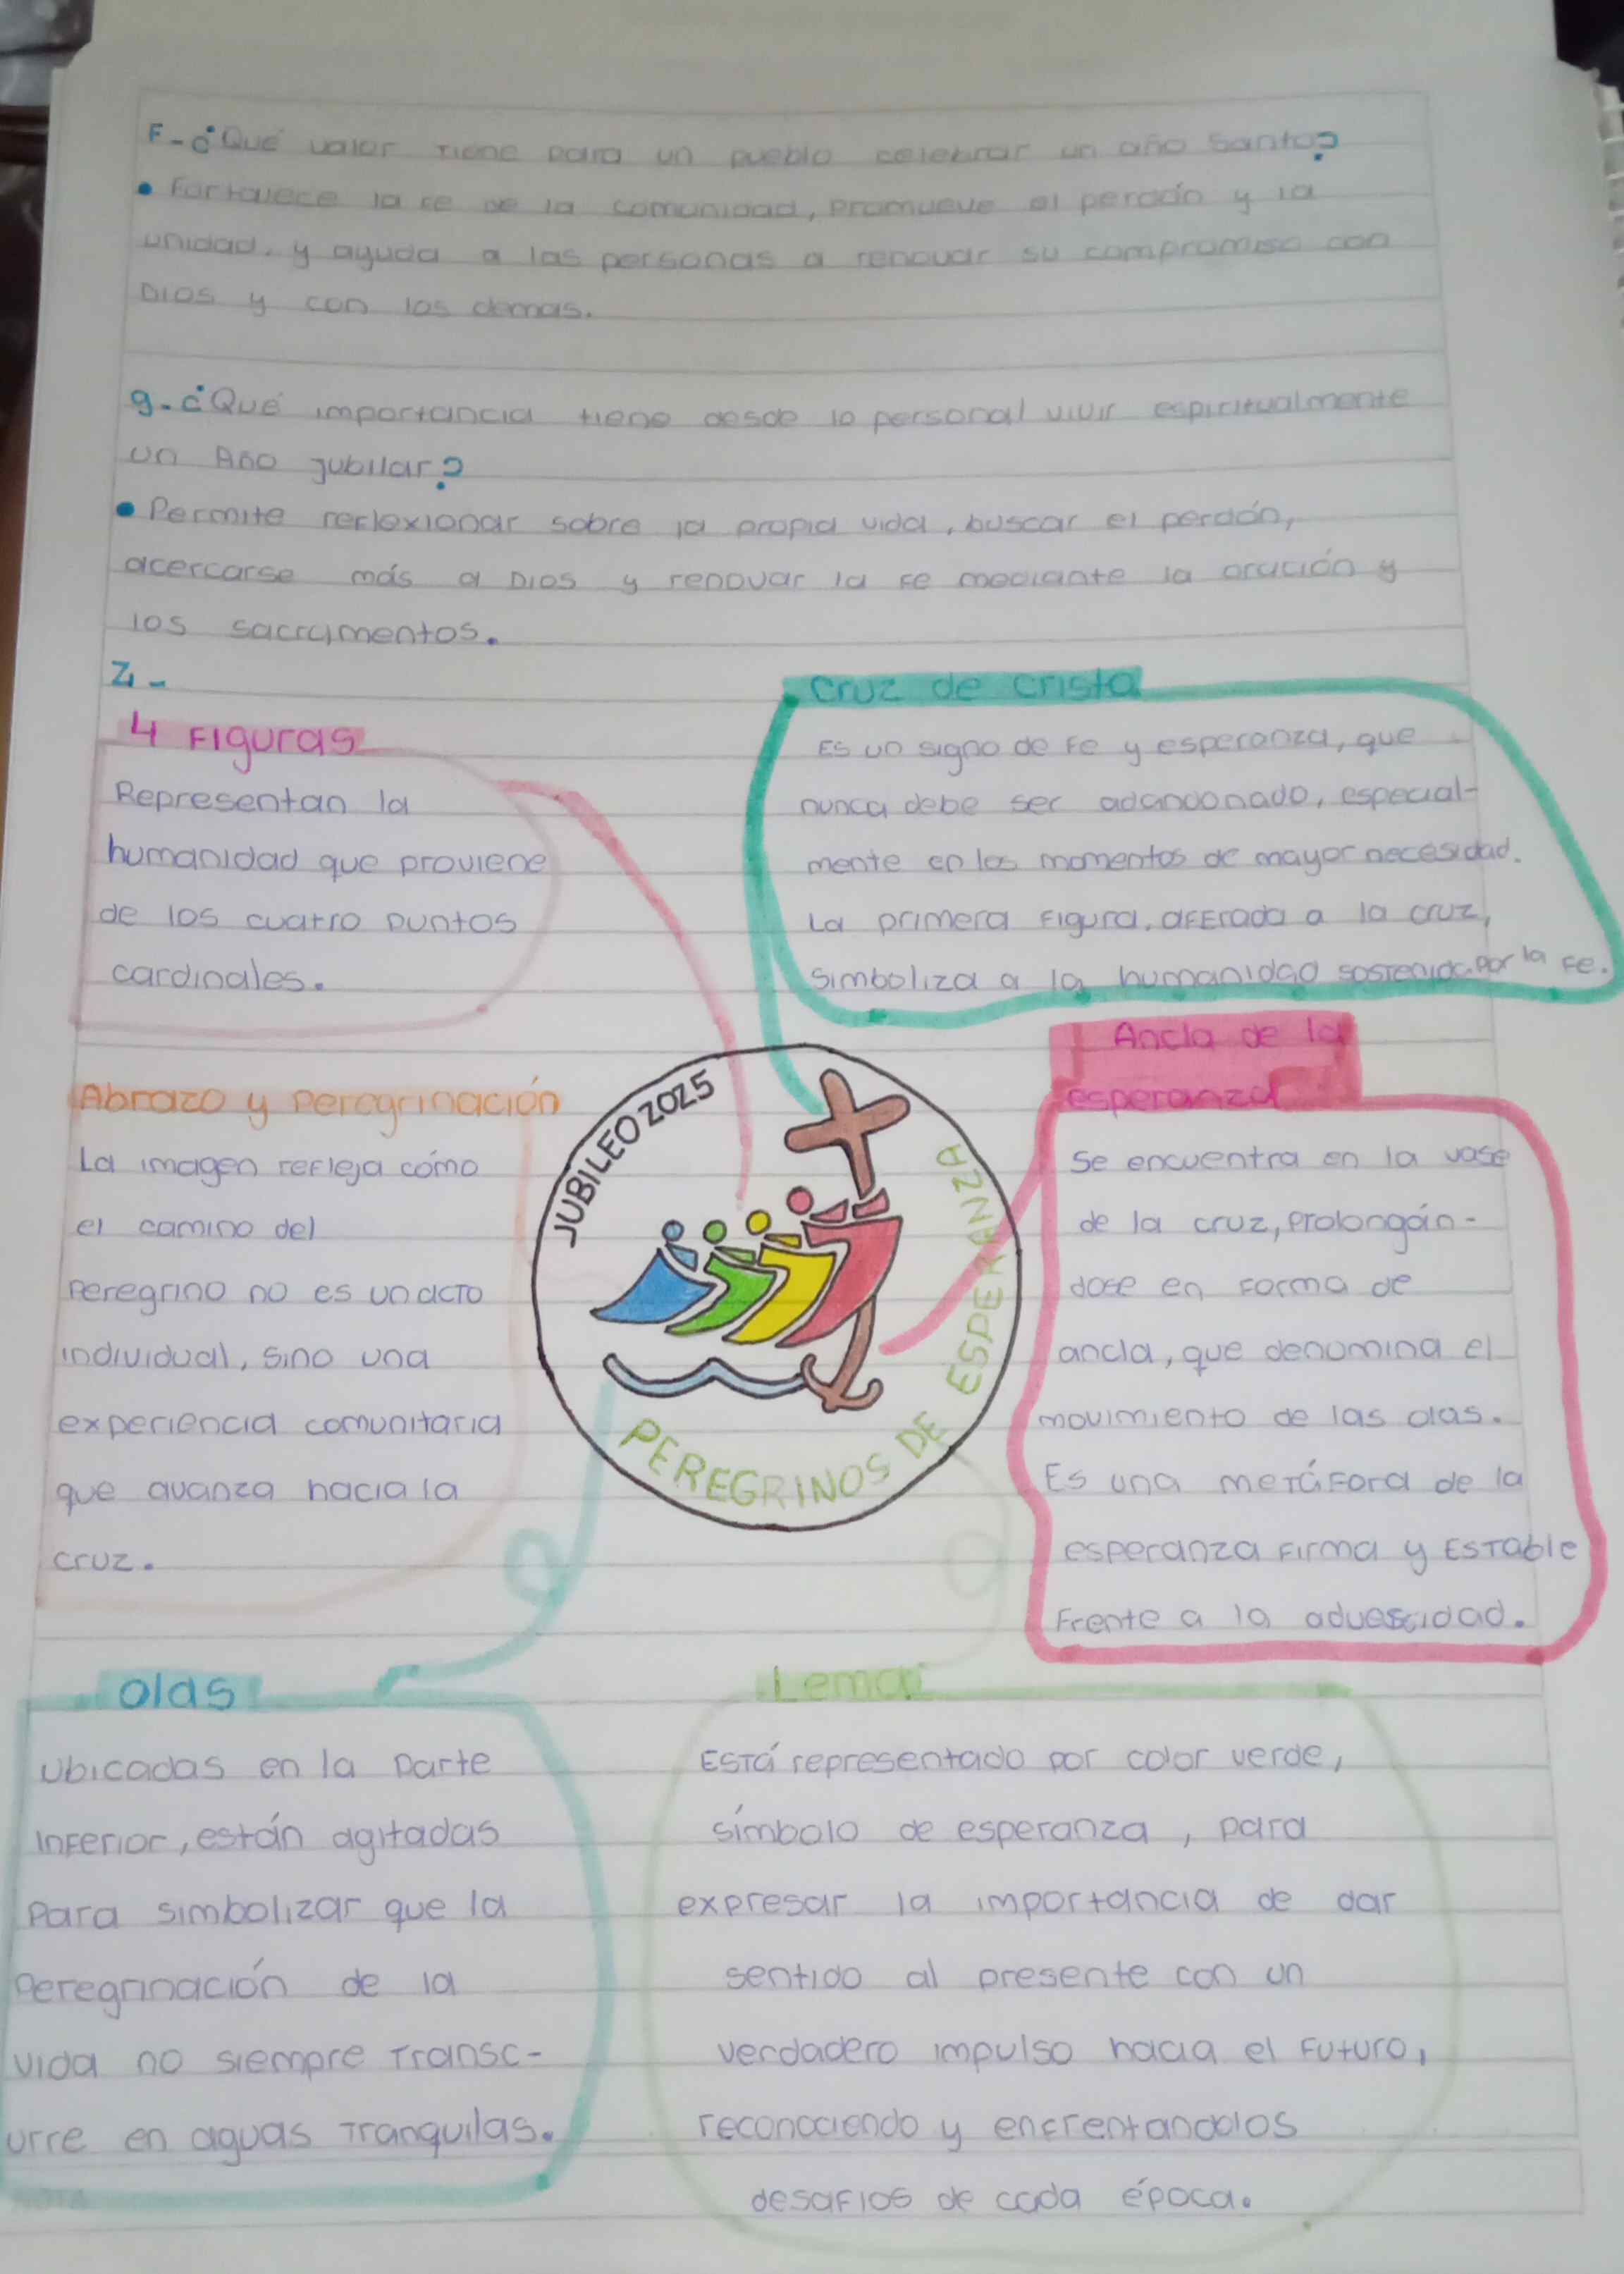 F-¿Qué valor tiene para un pueblo celebrar un año Santo?
• Fortalece la fe de la comunidad, promueve el perdón y la
unidad, y ayuda a las personas a renovar su compromiso con
Dios y con los demas.
g-¿Qué importancia tiene desde lo personal vivir espiritualmente
un Año jubilar?
• Permite reflexionar sobre la propia vida, buscar el perdón,
acercarse más a Dios y renovar la fe mediante la oración y
los sacramentos.
2-
4 Figuras
Representan la
humanidad que proviene
de los cuatro puntos
cardinales.
Cruz de cristo
Es un signo de Fe y esperanza, que
nunca debe ser abandonado, especial-
mente en los momentos de mayor necesidad.
La primera Figura, aferrada a la cruz,
simboliza a la humanidad sostenida por la Fe.
Abrazo y peregrinación
La imagen refleja cómo
el camino del
peregrino no es un acto
individual, sino una
experiencia comunitaria
que avanza hacia la
cruz.
JUBILEO 2025
PEREGRINOS DE ESPERANZA
Ancla de la
esperanza
Se encuentra en la vase
de la cruz, prolongán-
dose en forma de
ancla, que denomina el
movimiento de las olas.
Es una metáfora de la
esperanza firma y estable
Frente a la adversidad.
Olas
Ubicadas en la parte
inferior, están agitadas
para simbolizar que la
peregrinación de la
vida no siempre transc-
urre en aguas tranquilas.
Lema
Está representado por color verde,
símbolo de esperanza, para
expresar la importancia de dar
sentido al presente con un
verdadero impulso hacia el futuro,
reconociendo y enfrentandolos
desafios de cada época.